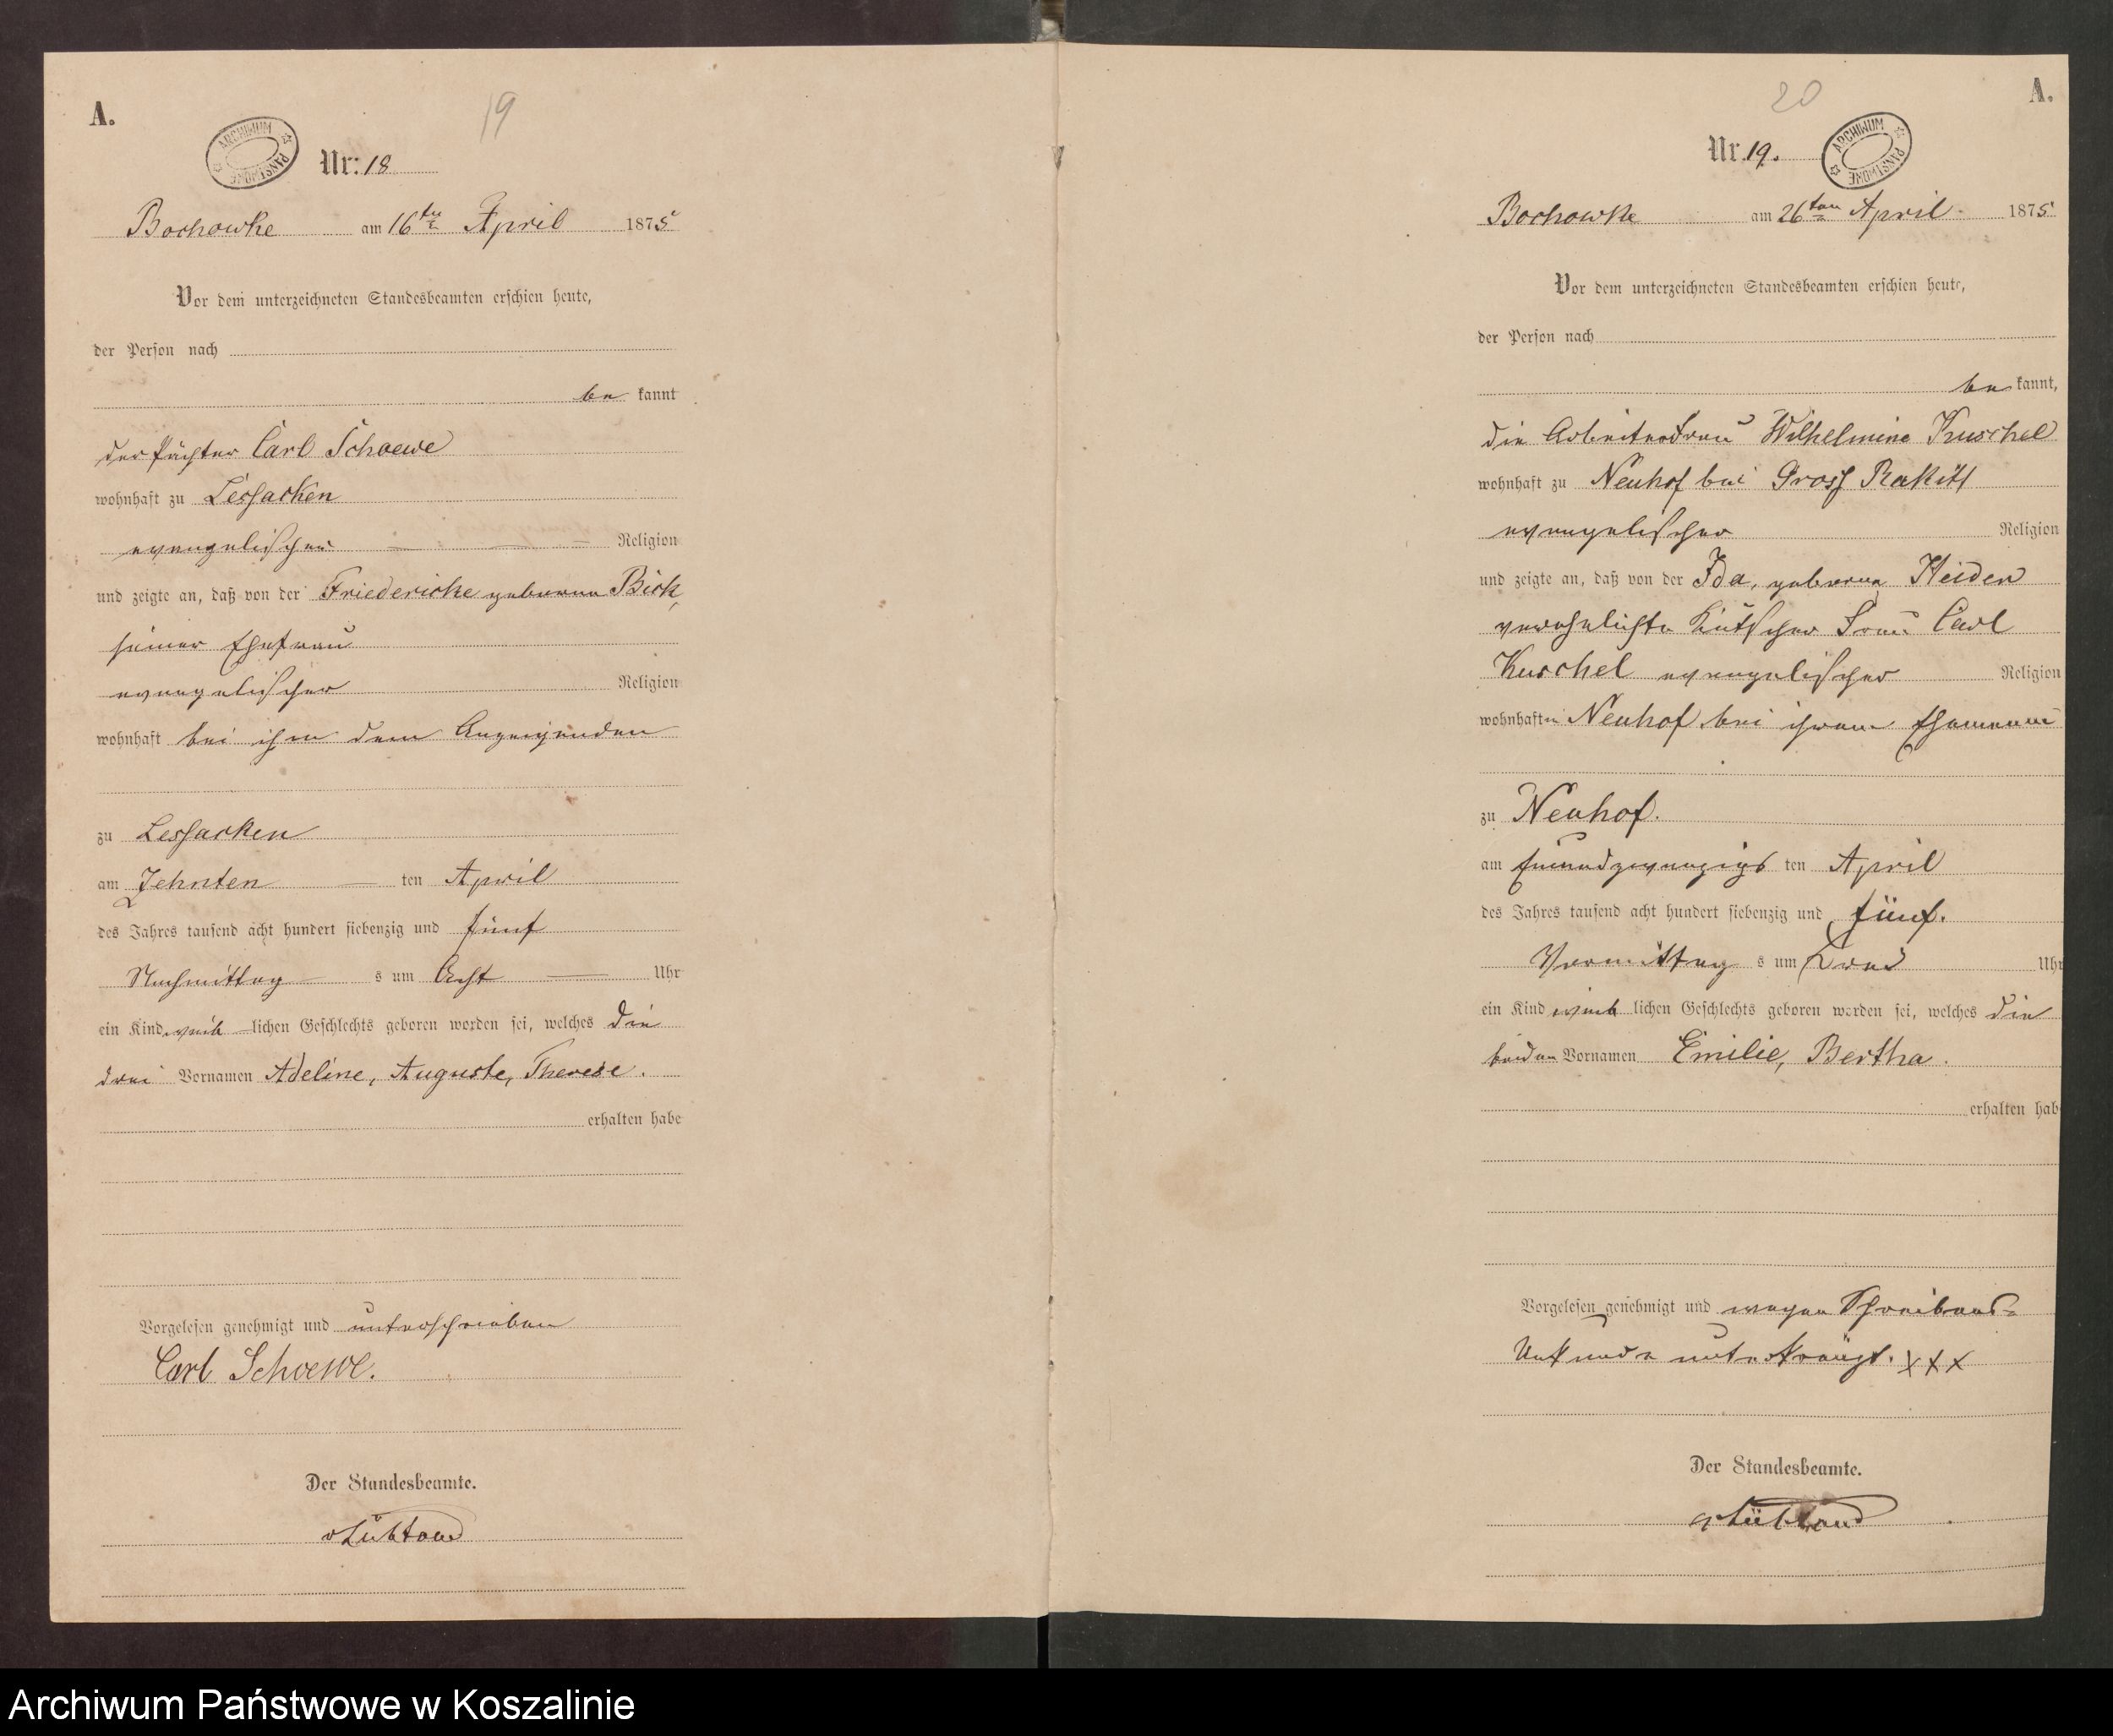 A.
19
ARCHIWUM PAŃSTWOWE
Nr: 18
Bochowke am 16ten April 1875
Vor dem unterzeichneten Standesbeamten erschien heute,
der Person nach
be kannt
der Pächter Carl Schoewe
wohnhaft zu Lessacken
evangelischer Religion
und zeigte an, daß von der Friedericke geborene Bick,
seiner Ehefrau
evangelischer Religion
wohnhaft bei ihm dem Anzeigenden
zu Lessacken
am Zehnten ten April
des Jahres tausend acht hundert siebenzig und fünf
Nachmittag s um Acht Uhr
ein Kind weib lichen Geschlechts geboren worden sei, welches die
drei Vornamen Adeline, Auguste, Therese.
erhalten habe
Vorgelesen genehmigt und unterschrieben
Carl Schoewe.
Der Standesbeamte.
A.
20
Nr. 19.
ARCHIWUM PAŃSTWOWE
Bochowke am 26ten April. 1875
Vor dem unterzeichneten Standesbeamten erschien heute,
der Person nach
be kannt,
die Arbeiterfrau Wilhelmine Kuschel
wohnhaft zu Neuhof bei Gross Rakitt
evangelischer Religion
und zeigte an, daß von der Ida, geborene Heiden
verehelichte Kutscher Frau Carl
Kuschel evangelischer Religion
wohnhaft in Neuhof bei ihrem Ehemann
zu Neuhof.
am Einundzwanzigs ten April
des Jahres tausend acht hundert siebenzig und fünf.
Vormittag s um Drei Uhr
ein Kind weib lichen Geschlechts geboren worden sei, welches die
beiden Vornamen Emilie, Bertha.
erhalten hab
Vorgelesen genehmigt und wegen Schreibens-
Unkunde unterkreuzt. XXX
Der Standesbeamte.
Archiwum Państwowe w Koszalinie